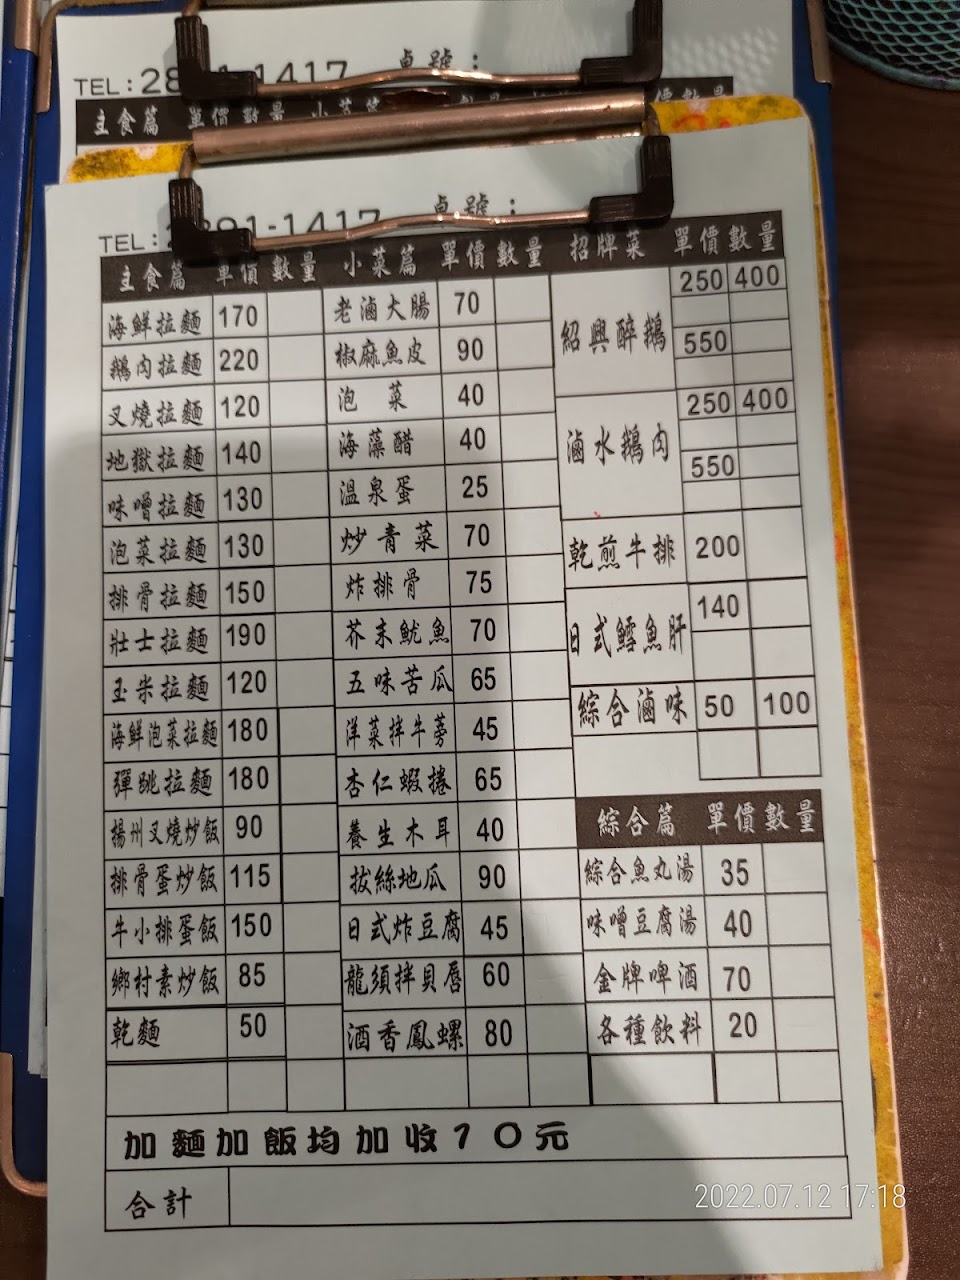 TEL:2891-1417 桌號：
主食篇 單價 數量 小菜篇
TEL: 2891-1417 桌號：
主食篇 單價 數量 小菜篇 單價 數量 招牌菜 單價 數量
海鮮拉麵 170 老滷大腸 70 紹興醉鵝 250 400
鵝肉拉麵 220 椒麻魚皮 90 550
叉燒拉麵 120 泡菜 40 滷水鵝肉 250 400
地獄拉麵 140 海藻醋 40 550
味噌拉麵 130 溫泉蛋 25
泡菜拉麵 130 炒青菜 70 乾煎牛排 200
排骨拉麵 150 炸排骨 75 日式鱈魚肝 140
壯士拉麵 190 芥末魷魚 70
玉米拉麵 120 五味苦瓜 65 綜合滷味 50 100
海鮮泡菜拉麵 180 洋菜拌牛蒡 45
彈跳拉麵 180 杏仁蝦捲 65
揚州叉燒炒飯 90 養生木耳 40 綜合篇 單價 數量
排骨蛋炒飯 115 拔絲地瓜 90 綜合魚丸湯 35
牛小排蛋飯 150 日式炸豆腐 45 味噌豆腐湯 40
鄉村素炒飯 85 龍須拌貝唇 60 金牌啤酒 70
乾麵 50 酒香鳳螺 80 各種飲料 20
加麵加飯均加收10元
合計
2022.07.12 17:18